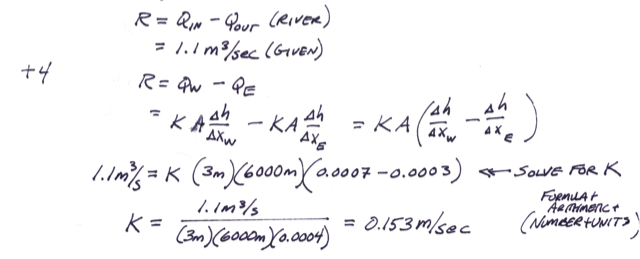 R = QIN - QOUT (RIVER)
= 1.1 m³/sec (GIVEN)
+4
R = QW - QE
= KA Δh/ΔXW - KA Δh/ΔXE = KA (Δh/ΔXW - Δh/ΔXE)
1.1m³/s = K (3m)(6000m)(0.0007 - 0.0003) ← SOLVE FOR K
K = 1.1m³/s / (3m)(6000m)(0.0004) = 0.153 m/sec
FORMULA +
ARITHMETIC +
(NUMBER + UNITS)